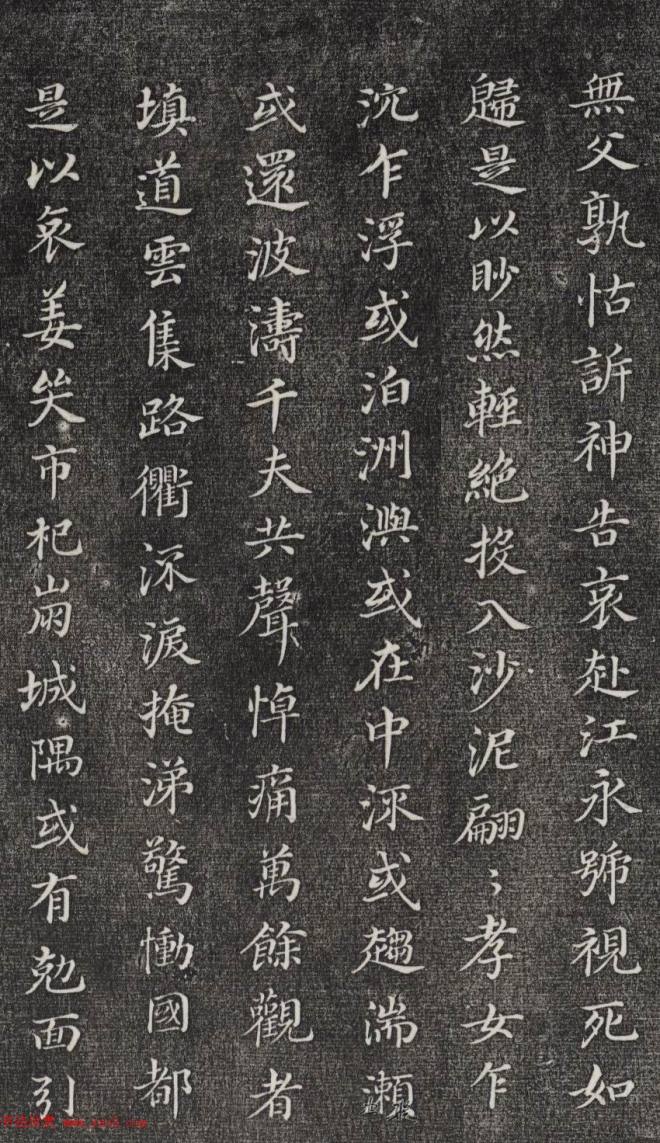 無父孰怙訴神告哀赴江永號視死如
歸是以眇然輕絕投入沙泥翩〻孝女乍
沉乍浮或泊洲嶼或在中流或趨湍瀨
或還波濤千夫共聲悼痛萬餘觀者
填道雲集路衢流淚掩涕驚慟國都
是以哀姜哭市杞崩城隅或有剋面引
书法欣赏 www.yac8.com